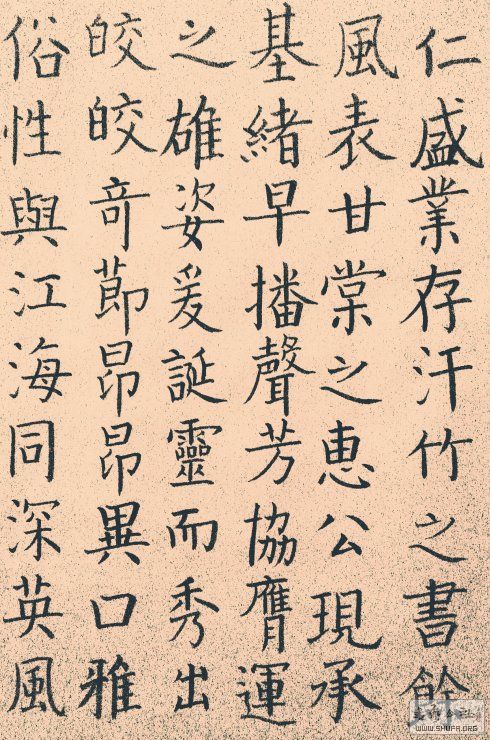 仁盛業存汗竹之書餘
風表甘棠之惠公現承
基緒早播聲芳協膺運
之雄姿爰誕靈而秀出
皎皎奇節昂昂異口雅
俗性與江海同深英風
WWW.SHUFA.ORG